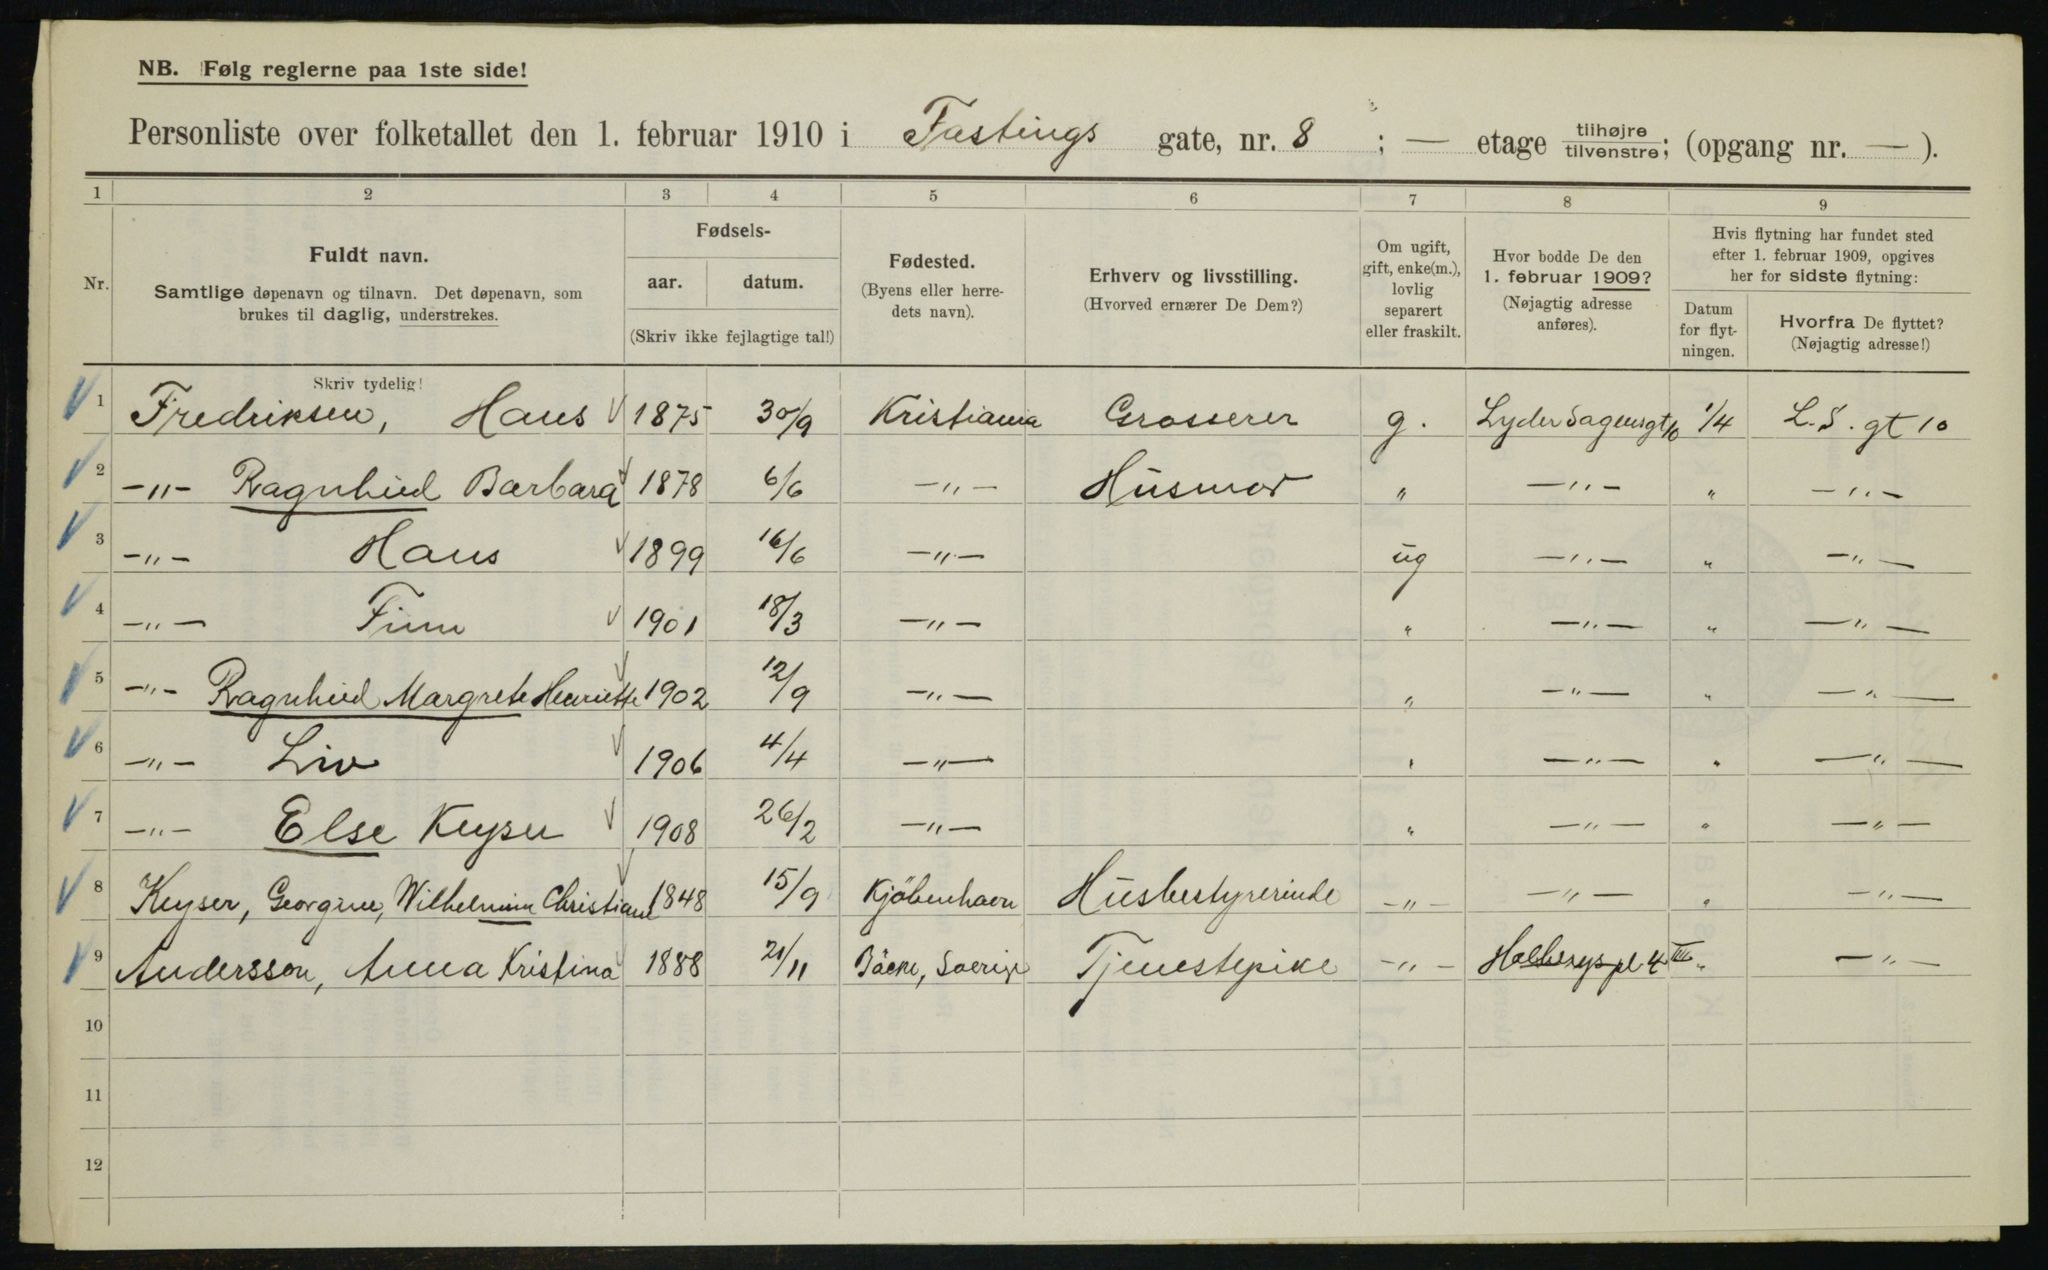 NB. Følg reglerne paa 1ste side!
Personliste over folketallet den 1. februar 1910 i Fastings gate, nr. 8 ; — etage tilhøjre tilvenstre; (opgang nr. — ).
1 2 3 4 5 6 7 8 9
Nr.
Fuldt navn.
Samtlige døpenavn og tilnavn. Det døpenavn, som
brukes til daglig, understrekes.
Skriv tydelig!
Fødsels-
aar. datum.
(Skriv ikke fejlagtige tal!)
Fødested.
(Byens eller herre-
dets navn).
Erhverv og livsstilling.
(Hvorved ernærer De Dem?)
Om ugift,
gift, enke(m.),
lovlig
separert
eller fraskilt.
Hvor bodde De den
1. februar 1909?
(Nøjagtig adresse
anføres).
Hvis flytning har fundet sted
efter 1. februar 1909, opgives
her for sidste flytning:
Datum
for flyt-
ningen.
Hvorfra De flyttet?
(Nøjagtig adresse!)
1 Fredriksen, Hans 1875 30/9 Kristiania Grosserer g. Lyder Sagensgt 10 1/4 L. S. gt 10
2 —"— Ragnhild Barbara 1878 6/6 —"— Husmor " —"— " —"—
3 —"— Hans 1899 16/6 —"— ug —"— " —"—
4 —"— Finn 1901 18/3 —"— " —"— " —"—
5 —"— Ragnhild Margrete Henriette 1902 12/9 —"— " —"— " —"—
6 —"— Liv 1906 4/4 —"— " —"— " —"—
7 —"— Else Keyser 1908 26/2 —"— " —"— " —"—
8 Keyser, Georgine, Wilhelmine Christiane 1848 15/9 Kjöbenhavn Husbestyrerinde —"— —"— " —"—
9 Andersson, Anna Kristina 1888 21/11 Bäcke, Sverige Tjenestepike —"— Holbergs pl 4 III " —"—
10
11
12